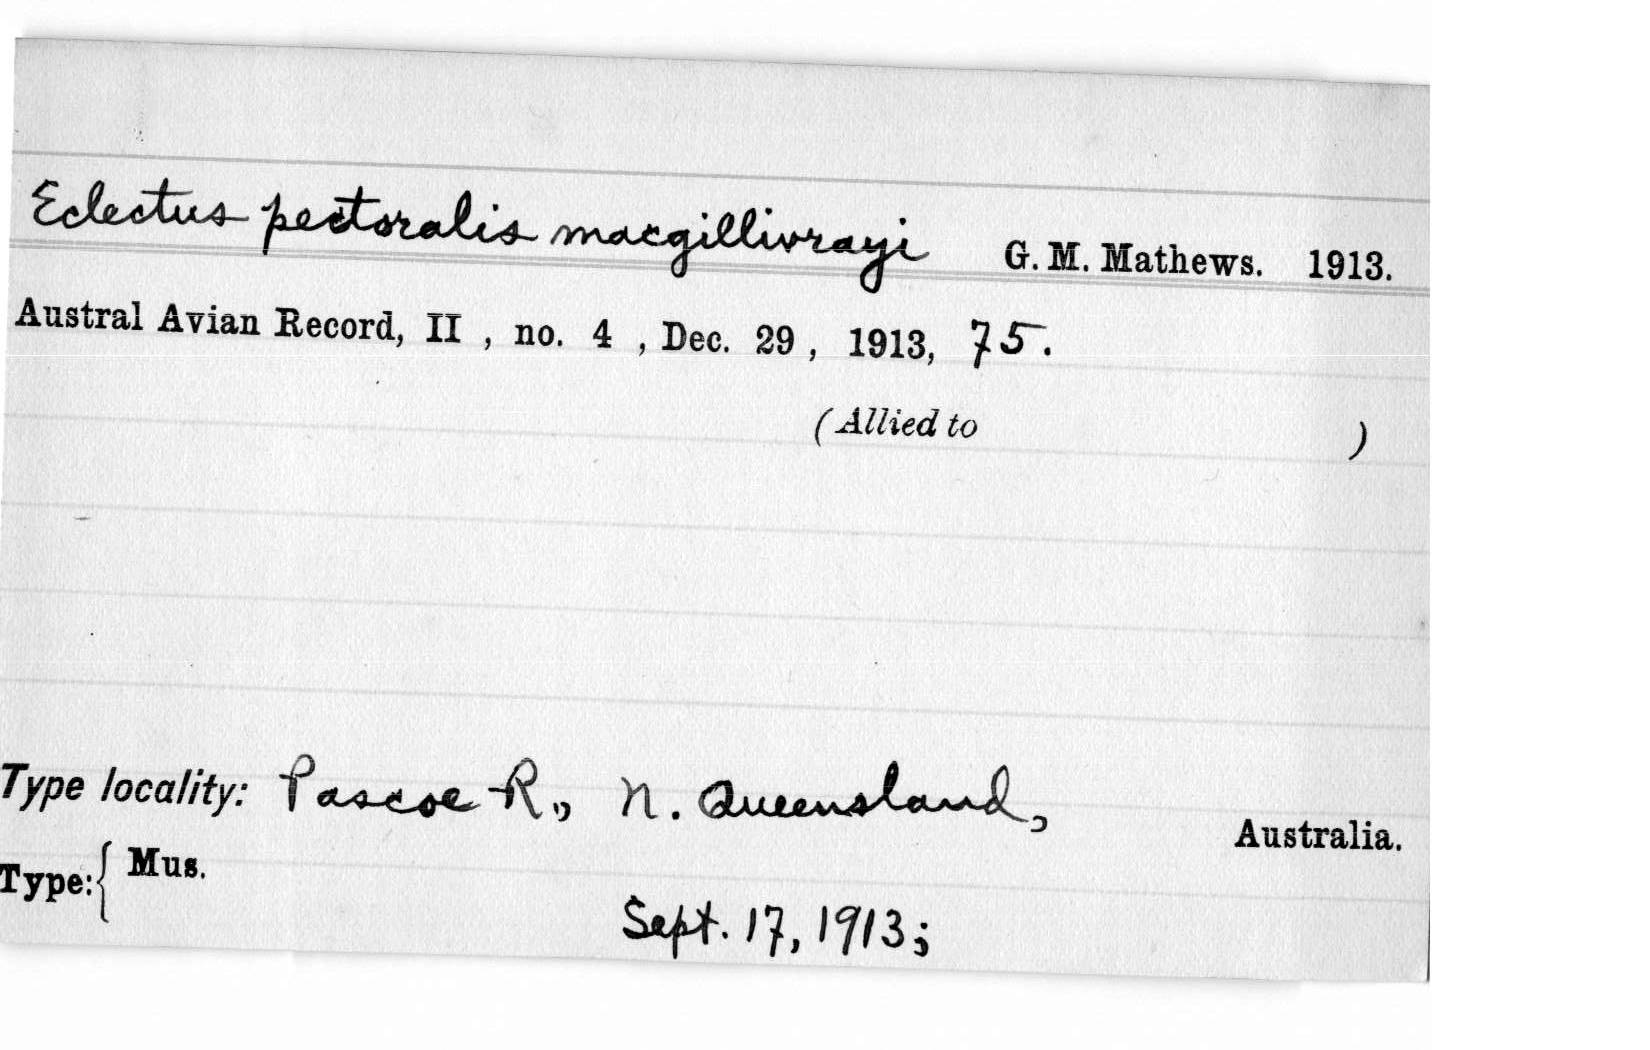 Eclectus pectoralis macgillivrayi G. M. Mathews. 1913.
Austral Avian Record, II , no. 4 , Dec. 29 , 1913, 75.
(Allied to )
Type locality: Pascoe R., N. Queensland, Australia.
Type:{ Mus.
Sept. 17, 1913;